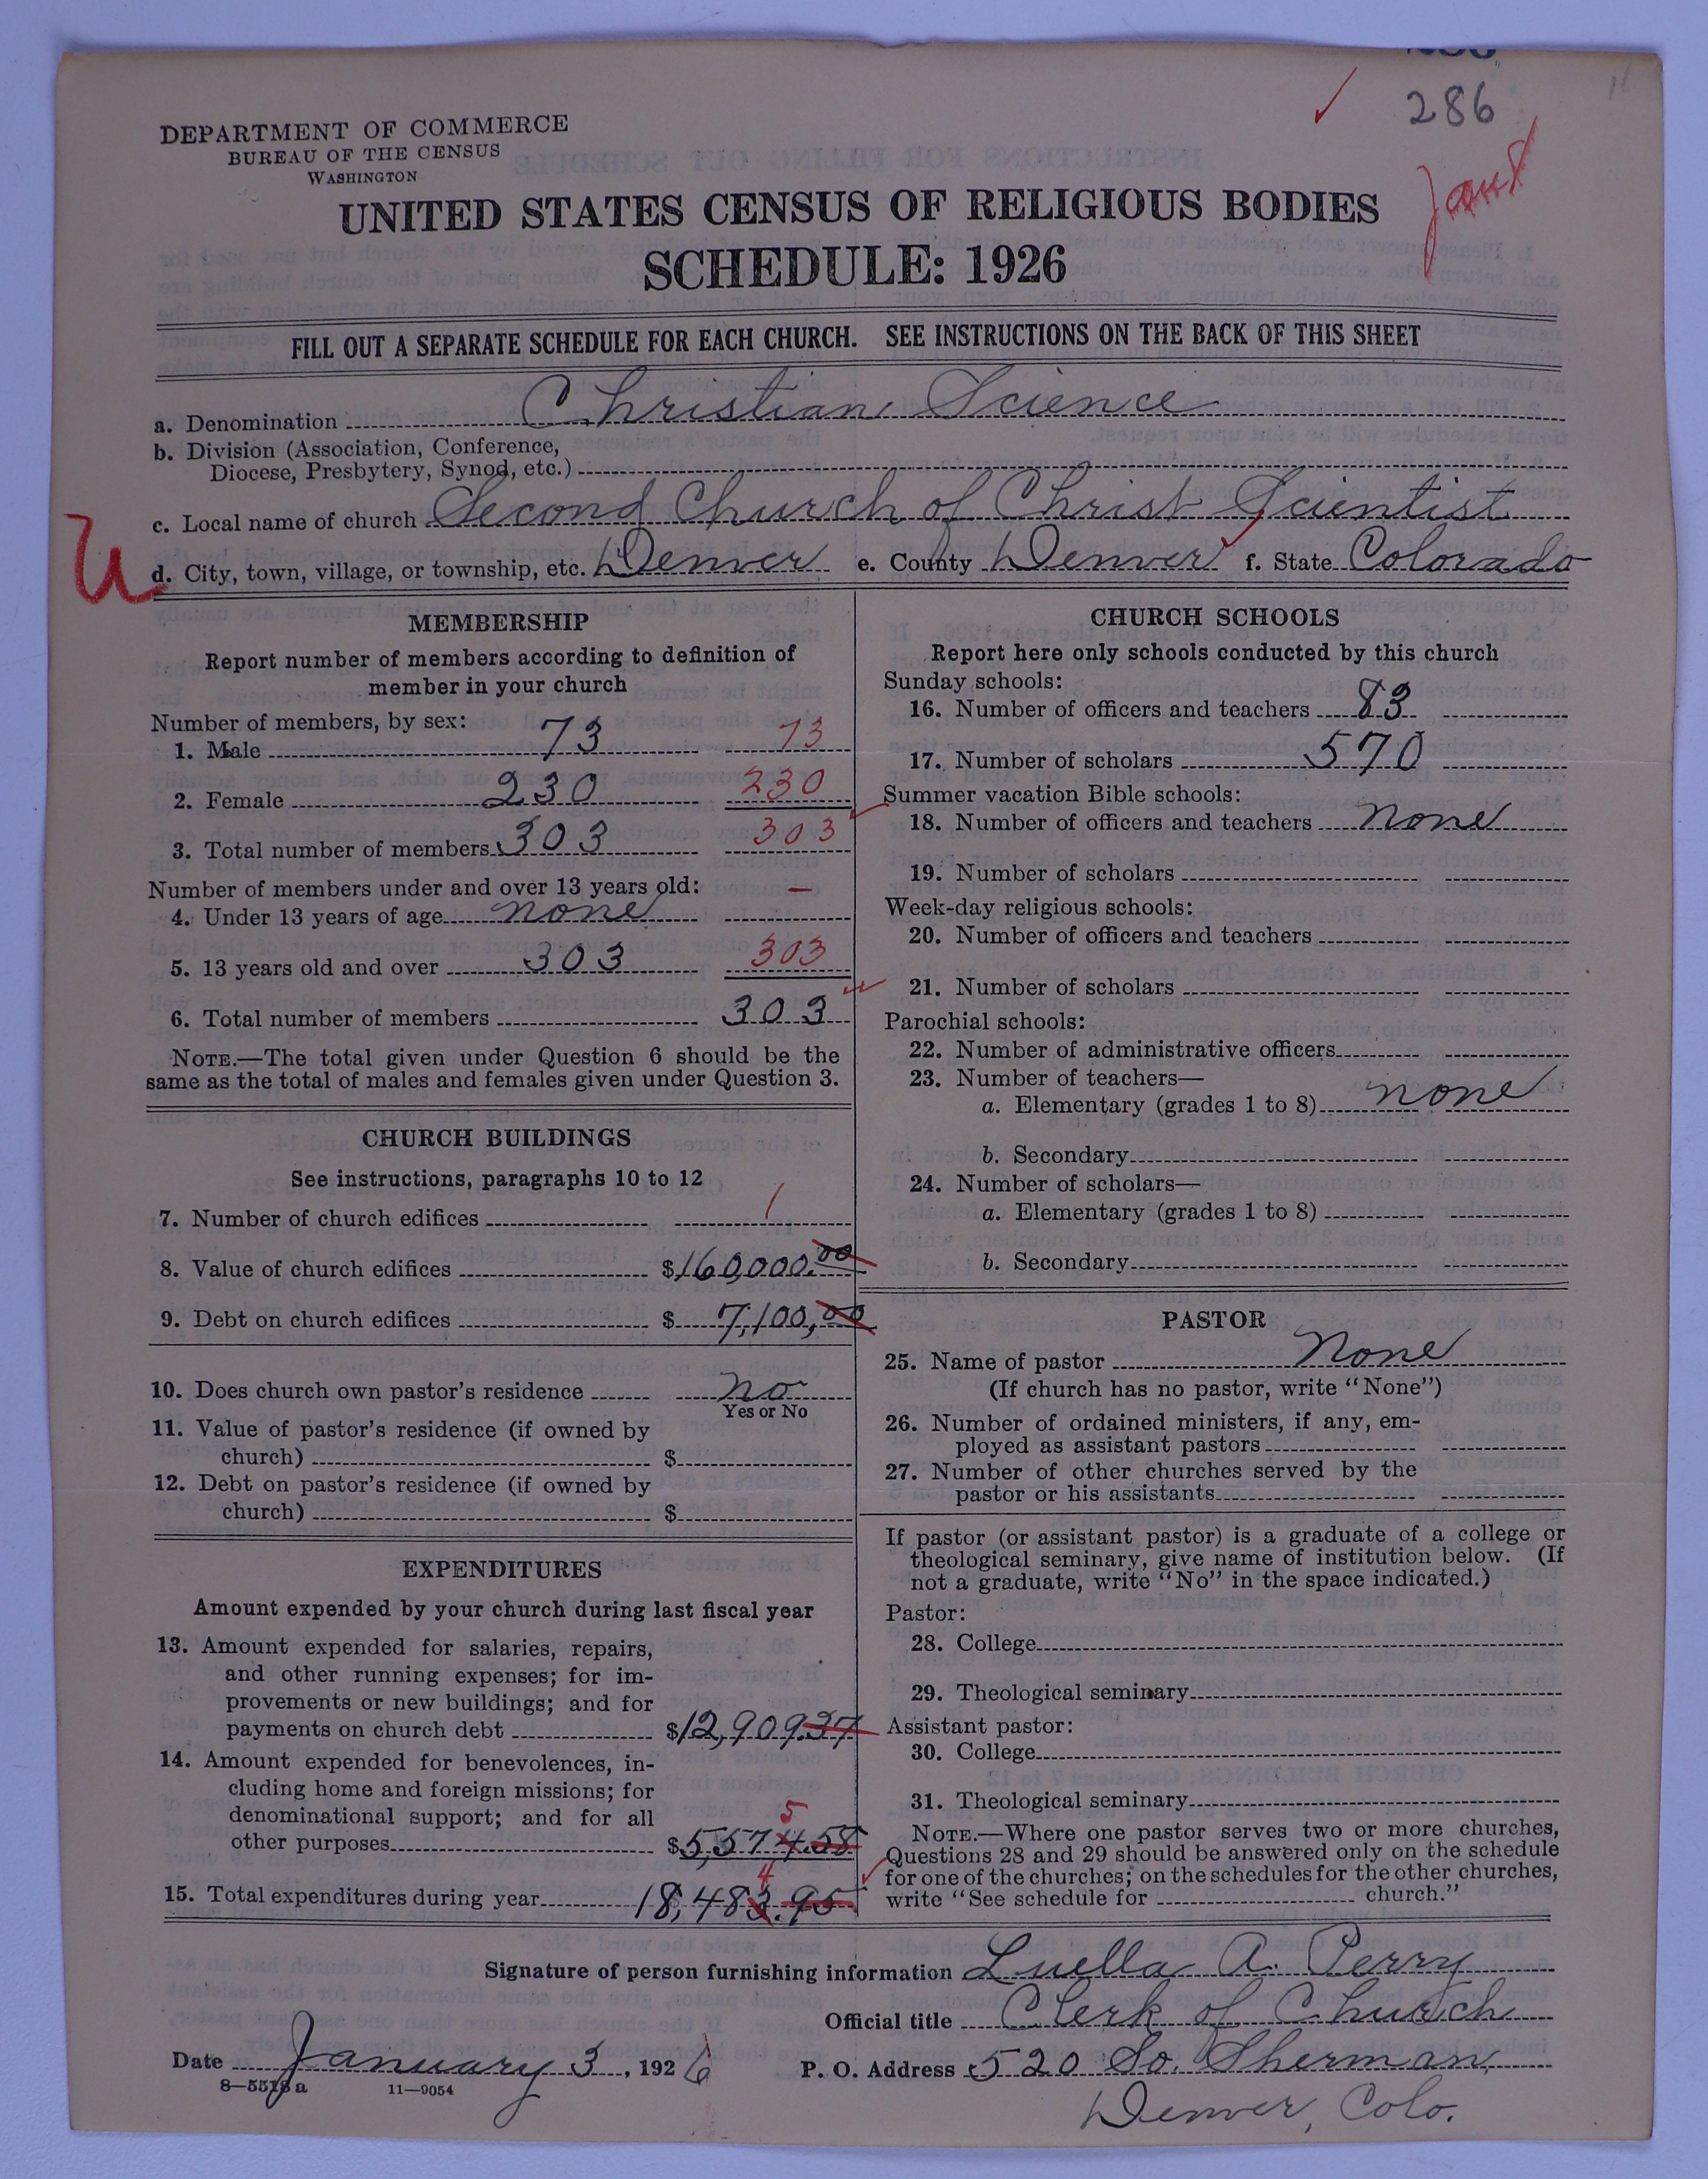 286
DEPARTMENT OF COMMERCE
BUREAU OF THE CENSUS
WASHINGTON
UNITED STATES CENSUS OF RELIGIOUS BODIES
SCHEDULE: 1926
FILL OUT A SEPARATE SCHEDULE FOR EACH CHURCH. SEE INSTRUCTIONS ON THE BACK OF THIS SHEET
a. Denomination Christian Science
b. Division (Association, Conference,
Diocese, Presbytery, Synod, etc.)
c. Local name of church Second Church of Christ Scientist
U
d. City, town, village, or township, etc. Denver e. County Denver f. State Colorado
MEMBERSHIP
Report number of members according to definition of
member in your church
Number of members, by sex:
1. Male 73 73
2. Female 230 230
3. Total number of members 303 303
Number of members under and over 13 years old:
4. Under 13 years of age none —
5. 13 years old and over 303 303
6. Total number of members 303
NOTE.—The total given under Question 6 should be the
same as the total of males and females given under Question 3.
CHURCH BUILDINGS
See instructions, paragraphs 10 to 12
7. Number of church edifices 1
8. Value of church edifices $160,000.00
9. Debt on church edifices $ 7,100,00
10. Does church own pastor's residence no
Yes or No
11. Value of pastor's residence (if owned by
church) $
12. Debt on pastor's residence (if owned by
church) $
EXPENDITURES
Amount expended by your church during last fiscal year
13. Amount expended for salaries, repairs,
and other running expenses; for im-
provements or new buildings; and for
payments on church debt $12,909.37
14. Amount expended for benevolences, in-
cluding home and foreign missions; for
denominational support; and for all
5
other purposes $5,574.58
4
15. Total expenditures during year 18,483.95
CHURCH SCHOOLS
Report here only schools conducted by this church
Sunday schools:
16. Number of officers and teachers 83
17. Number of scholars 570
Summer vacation Bible schools:
18. Number of officers and teachers none
19. Number of scholars
Week-day religious schools:
20. Number of officers and teachers
21. Number of scholars
Parochial schools:
22. Number of administrative officers
23. Number of teachers—
a. Elementary (grades 1 to 8) none
b. Secondary
24. Number of scholars—
a. Elementary (grades 1 to 8)
b. Secondary
PASTOR
25. Name of pastor None
(If church has no pastor, write "None")
26. Number of ordained ministers, if any, em-
ployed as assistant pastors
27. Number of other churches served by the
pastor or his assistants
If pastor (or assistant pastor) is a graduate of a college or
theological seminary, give name of institution below. (If
not a graduate, write "No" in the space indicated.)
Pastor:
28. College
29. Theological seminary
Assistant pastor:
30. College
31. Theological seminary
NOTE.—Where one pastor serves two or more churches,
Questions 28 and 29 should be answered only on the schedule
for one of the churches; on the schedules for the other churches,
write "See schedule for church."
Signature of person furnishing information Luella A. Perry
Official title Clerk of Church
Date January 3, 1926 P. O. Address 520 So. Sherman,
8—5518a 11—9054
Denver, Colo.